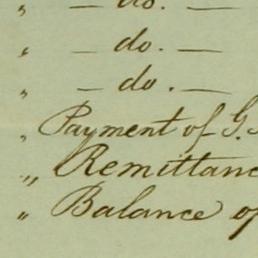 " — do. —
" — do. —
" — do. —
" Payment of G.
" Remittanc
" Balance of